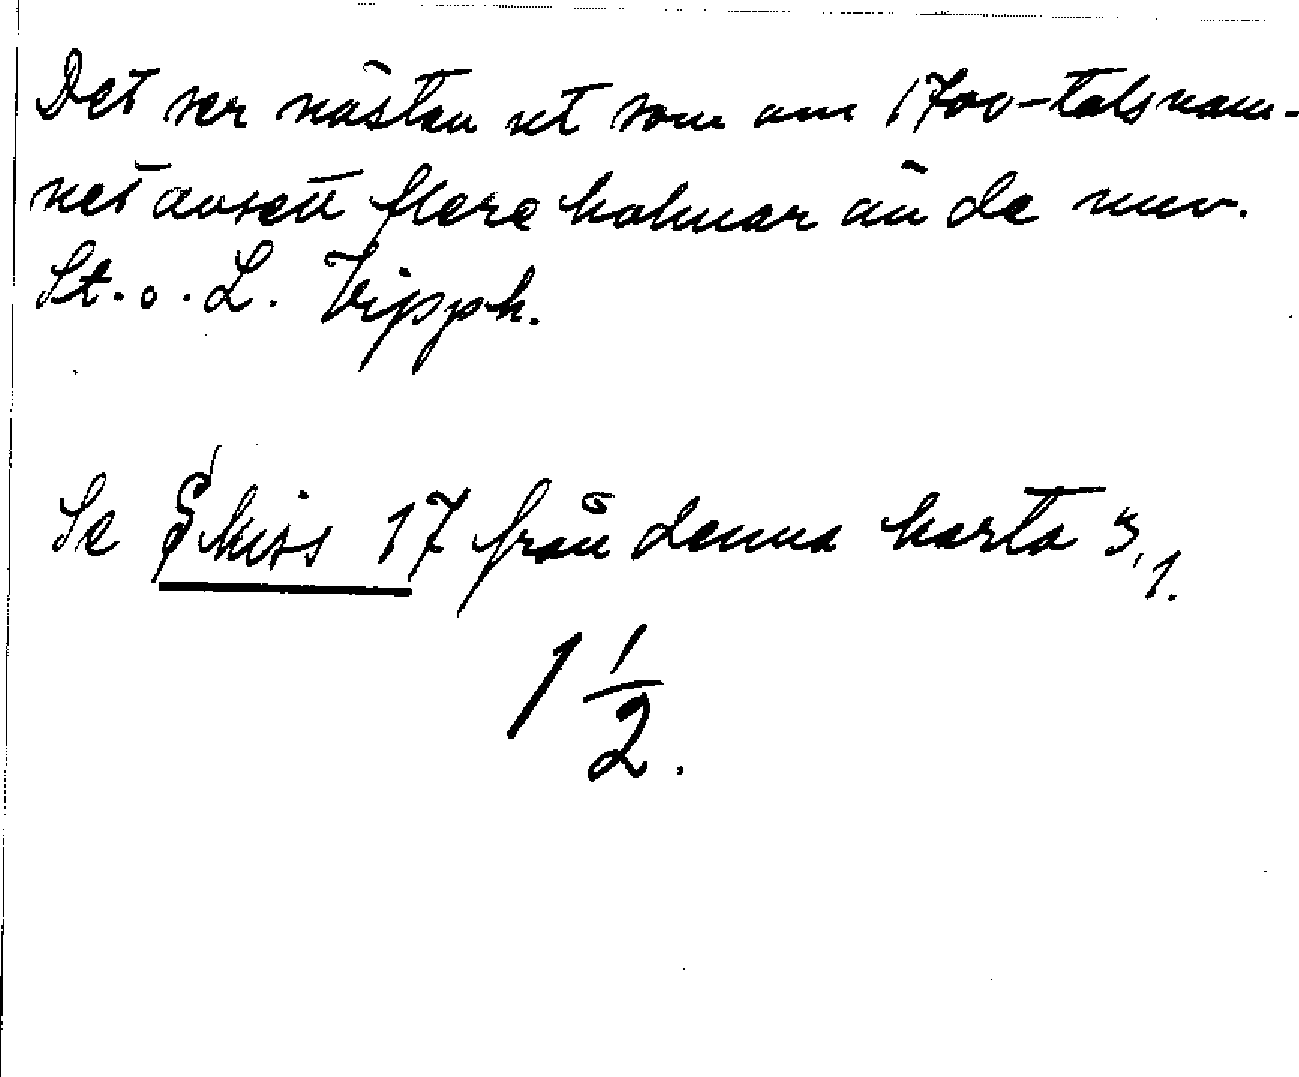 Det ser nästan ut som om 1700-talsnam-
net avsett flere holmar än de nuv.
St. o. L. Vipph.
Se Skiss 17 från denna karta 3,1.
1 1/2.